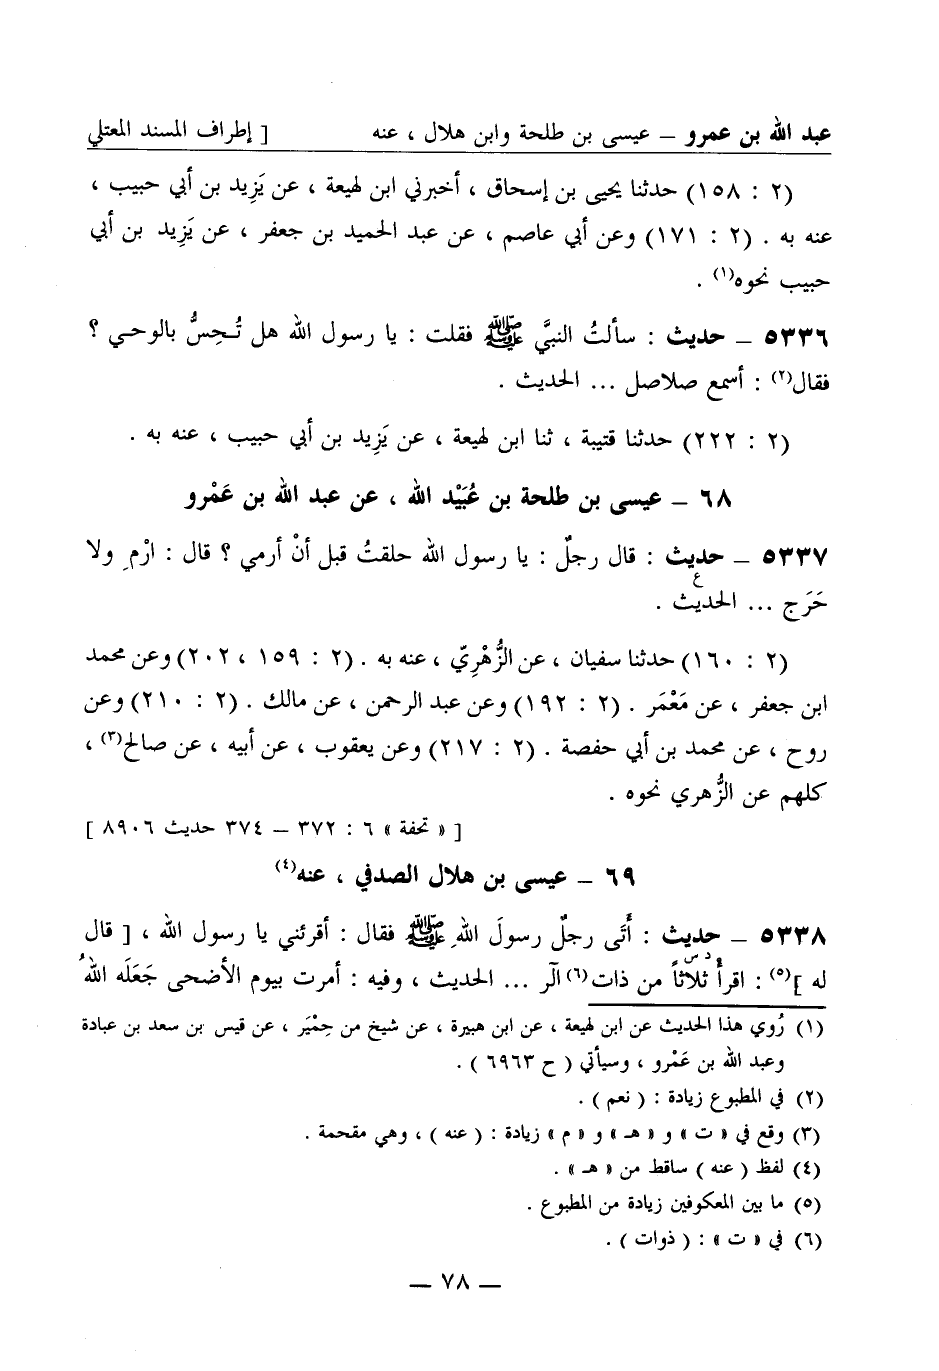 عبد الله بن عمرو – عيسى بن طلحة وابن هلال ، عنه [ إطراف المسند المعتلي
(٢ : ١٥٨) حدثنا يحيى بن إسحاق ، أخبرني ابن لهيعة ، عن يَزِيد بن أبي حبيب ،
عنه به . (٢ : ١٧١) وعن أبي عاصم ، عن عبد الحميد بن جعفر ، عن يَزِيد بن أبي
حبيب نحوه(١) .
٥٣٣٦ – حديث : سألتُ النبيَّ ﷺ فقلت : يا رسول الله هل تُحِسُّ بالوحي ؟
فقال(٢) : أسمع صلاصل ... الحديث .
(٢ : ٢٢٢) حدثنا قتيبة ، ثنا ابن لهيعة ، عن يَزِيد بن أبي حبيب ، عنه به .
٦٨ – عيسى بن طلحة بن عُبَيْد الله ، عن عبد الله بن عَمْرو
٥٣٣٧ – حديث : قال رجلٌ : يا رسول الله حلقتُ قبل أنْ أرمي ؟ قال : ارْمِ ولا
ع
حَرَج ... الحديث .
(٢ : ١٦٠) حدثنا سفيان ، عن الزُّهْرِيّ ، عنه به . (٢ : ١٥٩ ، ٢٠٢) وعن محمد
ابن جعفر ، عن مَعْمَر . (٢ : ١٩٢) وعن عبد الرحمن ، عن مالك . (٢ : ٢١٠) وعن
روح ، عن محمد بن أبي حفصة . (٢ : ٢١٧) وعن يعقوب ، عن أبيه ، عن صالح(٣) ،
كلهم عن الزُّهري نحوه .
[ « تحفة » ٦ : ٣٧٢ – ٣٧٤ حديث ٨٩٠٦ ]
٦٩ – عيسى بن هلال الصدفي ، عنه(٤)
٥٣٣٨ – حديث : أَتَى رجلٌ رسولَ اللهِ ﷺ فقال : أقرئني يا رسول الله ، [ قال
د س
له ](٥) : اقرأْ ثلاثاً من ذات(٦) الٓر ... الحديث ، وفيه : أمرت بيوم الأضحى جَعَلَه اللهُ
(١) رُوي هذا الحديث عن ابن لهيعة ، عن ابن هبيرة ، عن شيخ من حِمْيَر ، عن قيس بن سعد بن عبادة
وعبد الله بن عَمْرو ، وسيأتي ( ح ٦٩٦٣ ) .
(٢) في المطبوع زيادة : ( نعم ) .
(٣) وقع في « ت » و « هـ » و « م » زيادة : ( عنه ) ، وهي مقحمة .
(٤) لفظ ( عنه ) ساقط من « هـ » .
(٥) ما بين المعكوفين زيادة من المطبوع .
(٦) في « ت » : ( ذوات ) .
– ٧٨ –